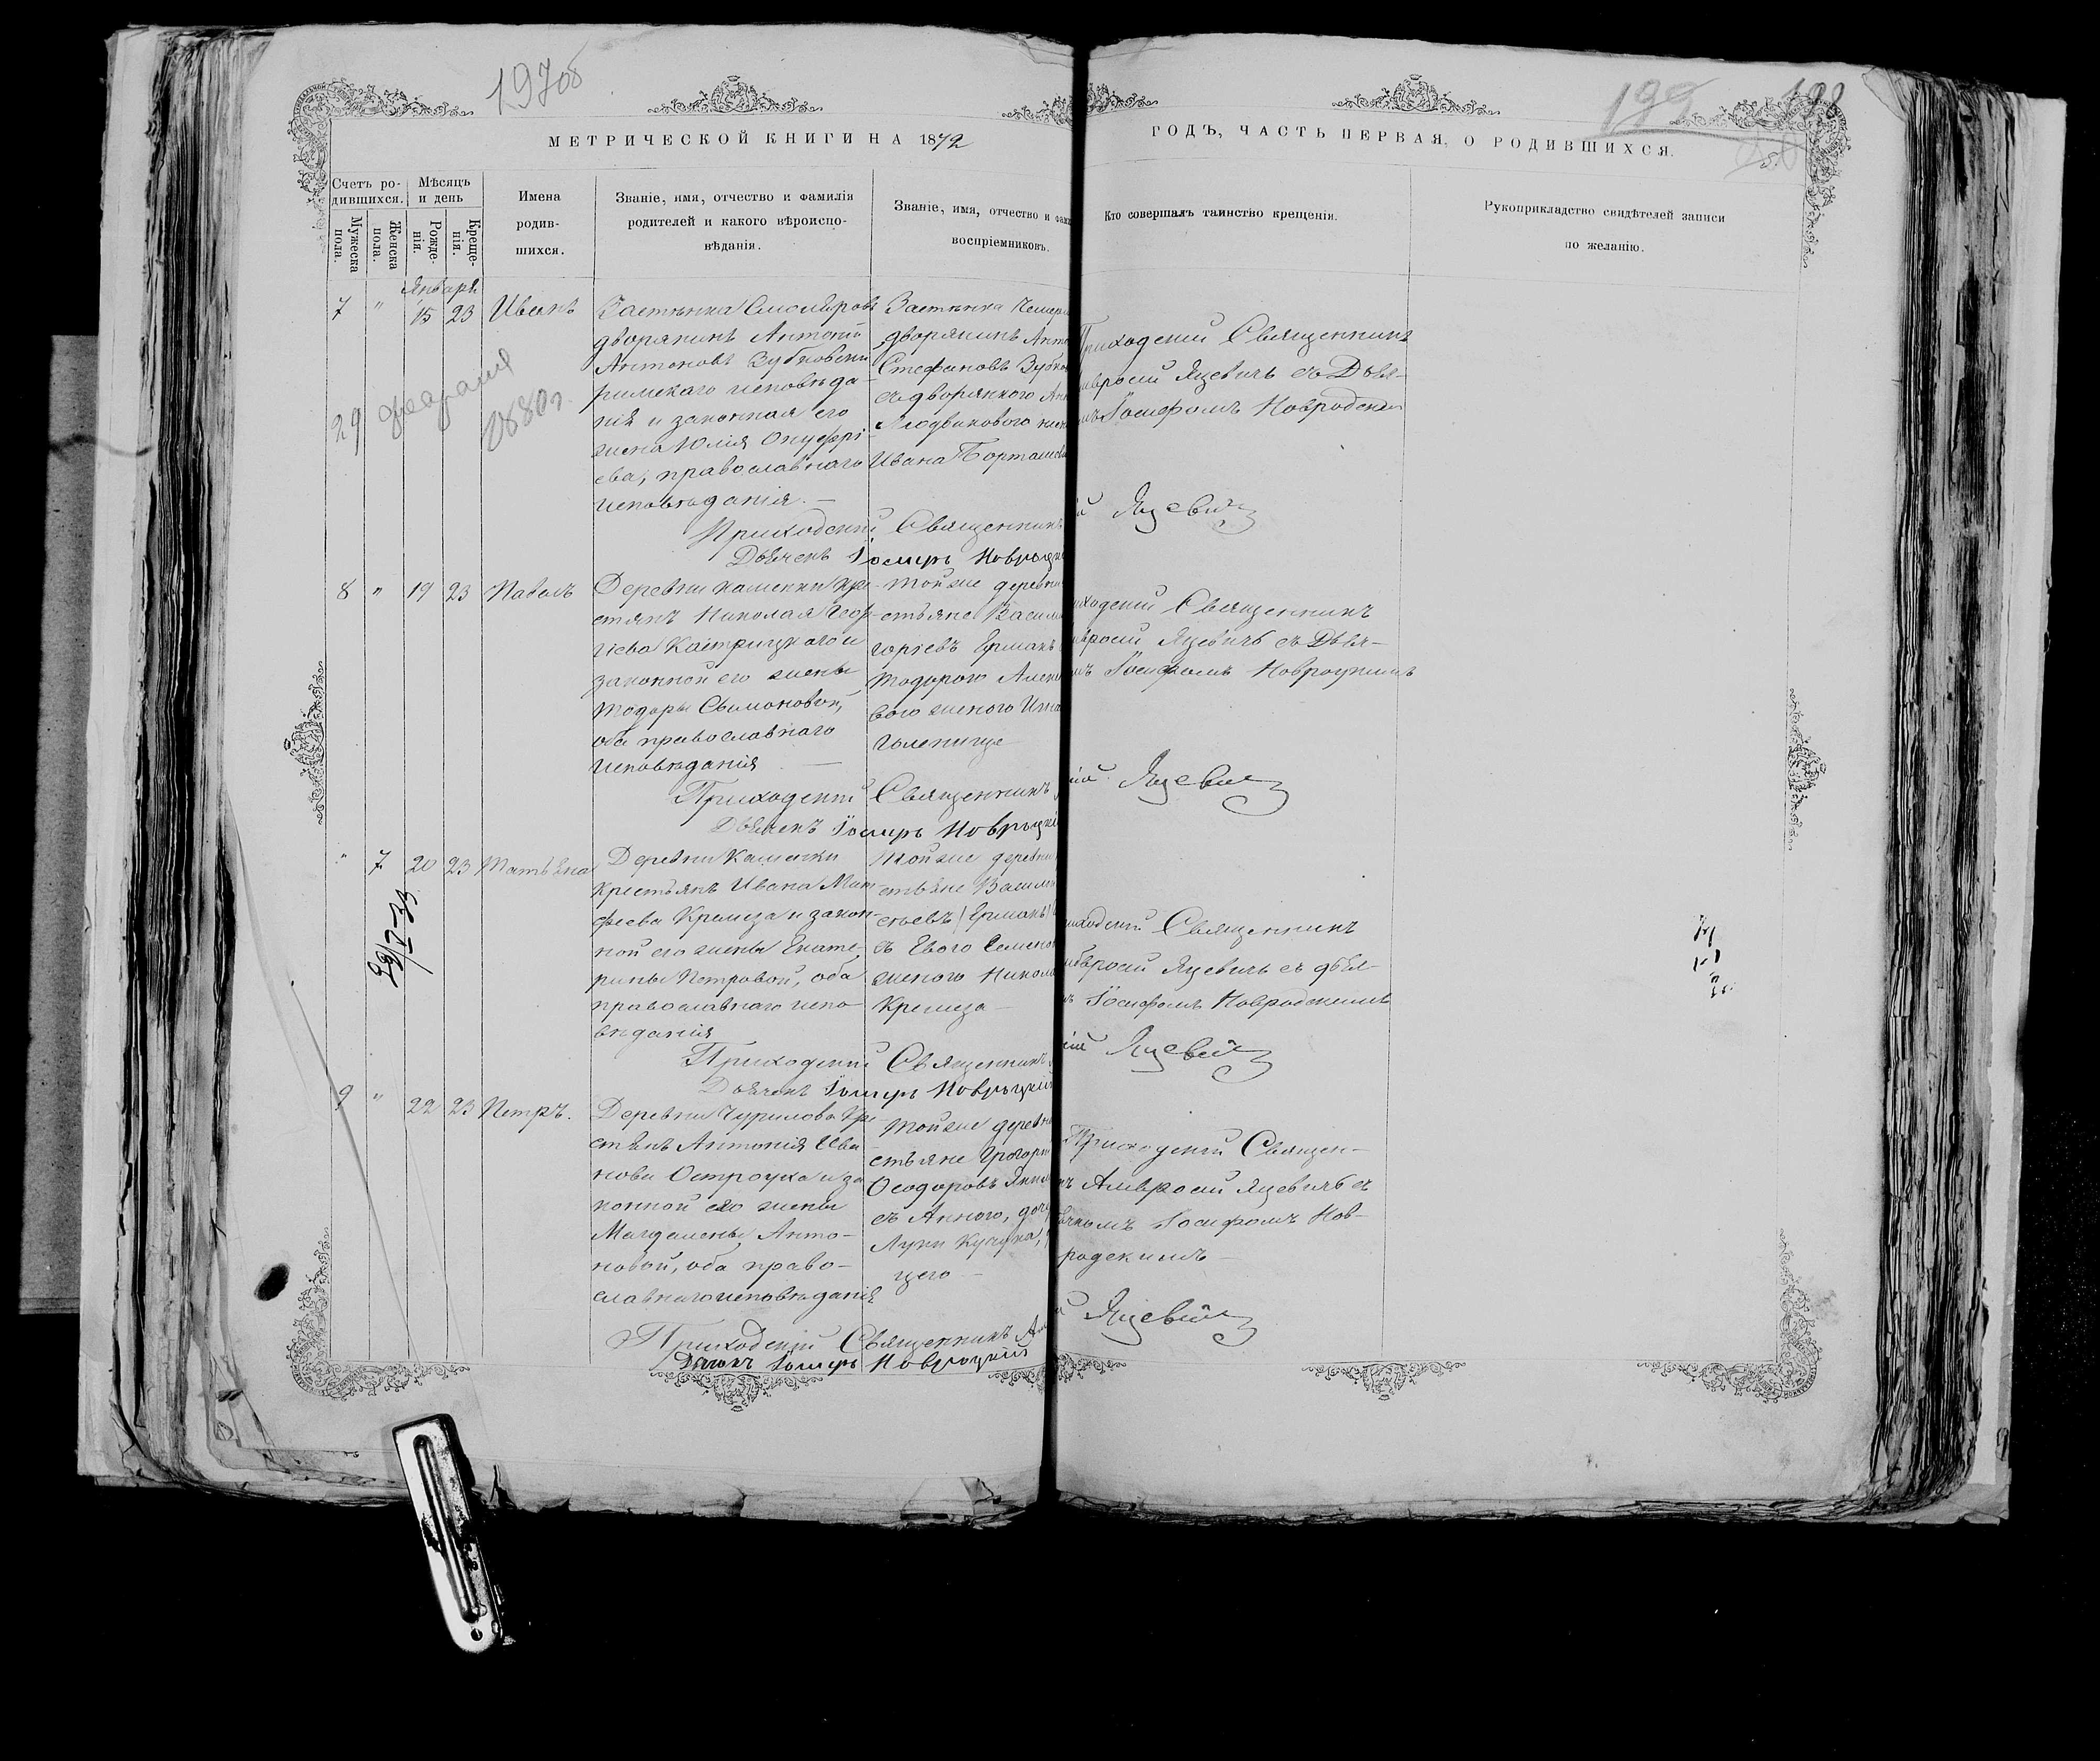 197об
199
МЕТРИЧЕСКОЙ КНИГИ НА 1872
ГОДЪ, ЧАСТЬ ПЕРВАЯ, О РОДИВШИХСЯ.
Счетъ ро-
дившихся.
Мужеска
пола.
Женска
пола.
Мѣсяцъ
и день
Рожде-
нія.
Креще-
нія.
Имена
родив-
шихся.
Званіе, имя, отчество и фамилія
родителей и какого вѣроиспо-
вѣданія.
Званіе, имя, отчество и фами
воспріемниковъ.
Кто совершалъ таинство крещенія.
Рукоприкладство свидѣтелей записи
по желанію.
Января
7 " 15 23 Иванъ
29 февраля
1880г.
Застѣнка
дворянинъ Антоній
Антоновъ Зубковскій
римскаго исповѣда-
нія и законная его
жена Юлія Онуфрі-
ева, православнаго
исповѣданія. —
Застѣнка
дворянинъ Анто
Стефановъ Зубков
съ дворянкою Анн
Людвиковою жен
Ивана
Приходскій Священникъ
Амвросій Яцевичъ съ Дья-
Іосифомъ Новродским
Приходскій Священникъ
ій Яцевич
Дьячекъ Іосифъ Новроцкі
8 " 19 23 Павелъ
Деревни Каменки кре-
стянъ Николая Геор-
гіева
законной его жены
Тодоры Симоновой,
оба православнаго
исповѣданія —
Тойже деревни
стьяне Васил
горіевъ Ермакъ
Тодорою Алекс
вою женою Игна
Голенище
Приходскій Священникъ
Амвросій Яцевичъ съ Дья-
Іосифомъ Новроцкимъ
Приходскій Священникъ
ій Яцевич
Дьячекъ Іосифъ Новроцкі
" 7 20 23 Татьяна
Деревни Каменки
Крестьянъ Ивана Мат
феева Кремеза и закон-
ной его жены Екате-
рины Петровой, оба
православнаго испо-
вѣданія
Тойже деревни
стьяне Васил
Ермакъ
съ Евою Семено
женою Никола
Кремеза —
Приходскій Священникъ
Амвросій Яцевичъ съ дья-
Іосифомъ Новродскимъ
Приходскій Священникъ
ій Яцевич
Дьячекъ Іосифъ Новроцкій
9 " 22 23 Петръ.
Деревни Чурилово Кре-
стьянъ Антонія Ива-
нова Остроука и за
конной его жены
Магдалены Анто-
новой, оба право-
славнаго исповѣданія
Тойже деревни
стьяне Григорій
Ѳеодоровъ
съ Анною, доче
Луки
цею —
Приходскій Священ-
Амвросій Яцевичъ съ
Дьячкомъ Іосифомъ Нов-
родскимъ —
Приходскій Священникъ Ам
й Яцевич
Дьячекъ Іосифъ Новроцкій